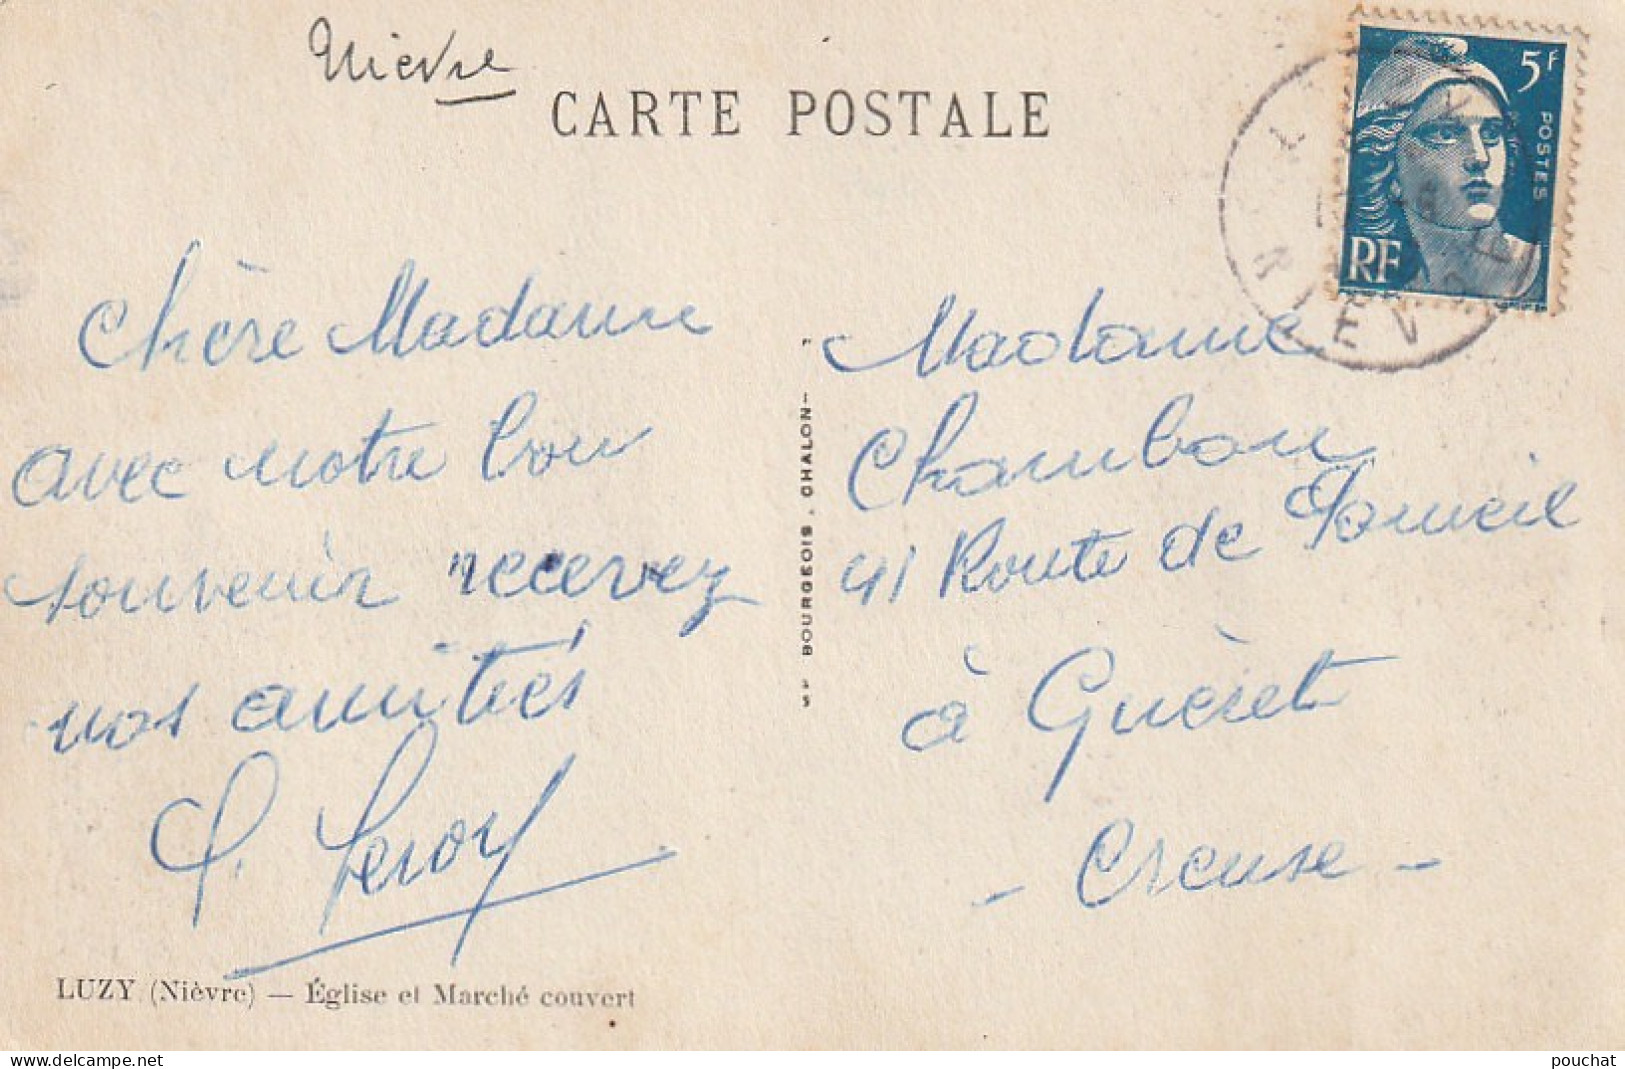 Nièvre
CARTE POSTALE
5F
POSTES
RF
Chère Madame
avec notre bon
souvenir recevez
nos amitiés
P. Leroy
LUZY (Nièvre) — Église et Marché couvert
BOURGEOIS . CHALON
Madame
Chambon
41 Route de
à Guèret
- Creuse -
delcampe.net
pouchat